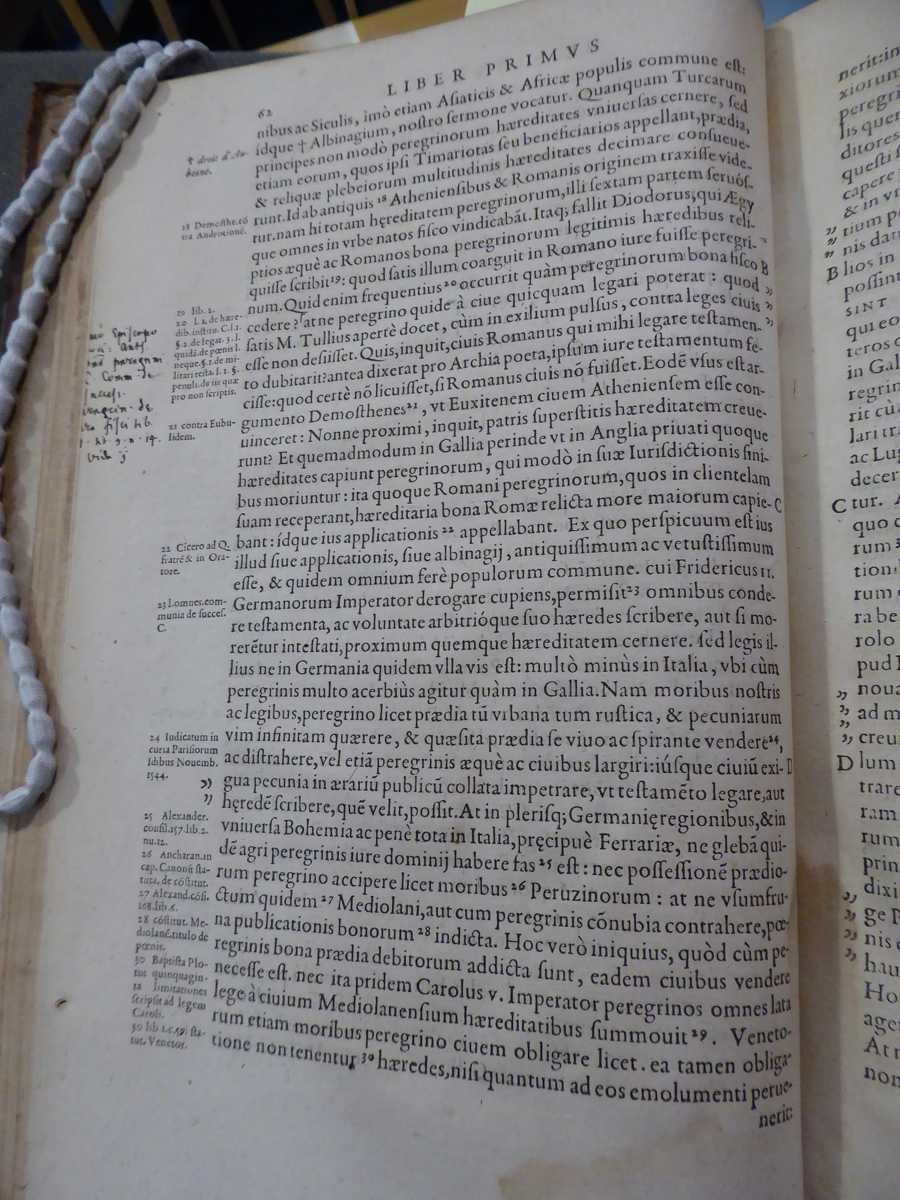 LIBER PRIMVS
62
nibus ac Siculis, imò etiam Asiaticis & Africæ populis commune est:
idque † Albinagium, nostro sermone vocatur. Quanquam Turcarum
principes non modò peregrinorum hæreditates vniuersas cernere, sed
etiam eorum, quos ipsi Timariotas seu beneficiarios appellant, prædia,
& reliquæ plebeiorum multitudinis hæreditates decimare consueue-
runt. Id ab antiquis 18 Atheniensibus & Romanis originem traxisse vide-
tur. nam hi totam hęreditatem peregrinorum, illi sextam partem seruós-
que omnes in vrbe natos fisco vindicabāt. Itaq; fallit Diodorus, qui Ægy
ptios æquè ac Romanos bona peregrinorum legitimis hæredibus reli-
quisse scribit 19: quod satis illum coarguit in Romano iure fuisse peregri-
num. Quid enim frequentius 20 occurrit quàm peregrinorum bona fisco B
cedere? at ne peregrino quidē à ciue quicquam legari poterat: quod „
satis M. Tullius apertè docet, cùm in exilium pulsus, contra leges ciuis „
esse non desiisset. Quis, inquit, ciuis Romanus qui mihi legare testamen- „
to dubitarit? antea dixerat pro Archia poeta, ipsum iure testamentum fe-
cisse: quod certè nō licuisset, si Romanus ciuis nō fuisset. Eodē vsus est ar-
gumento Demosthenes 21, vt Euxitenem ciuem Atheniensem esse con-
uinceret: Nonne proximi, inquit, patris superstitis hæreditatem creue-
runt? Et quemadmodum in Gallia perinde vt in Anglia priuati quoque
hæreditates capiunt peregrinorum, qui modò in suæ Iurisdictionis fini-
bus moriuntur: ita quoque Romani peregrinorum, quos in clientelam
suam receperant, hæreditaria bona Romæ relicta more maiorum capie- C
bant: idque ius applicationis 22 appellabant. Ex quo perspicuum est ius
illud siue applicationis, siue albinagij, antiquissimum ac vetustissimum
esse, & quidem omnium ferè populorum commune. cui Fridericus II.
Germanorum Imperator derogare cupiens, permisit 23 omnibus conde-
re testamenta, ac voluntate arbitrióque suo hæredes scribere, aut si mo-
rerētur intestati, proximum quemque hæreditatem cernere. sed legis il-
lius ne in Germania quidem vlla vis est: multò minùs in Italia, vbi cùm
peregrinis multo acerbiùs agitur quàm in Gallia. Nam moribus nostris
ac legibus, peregrino licet prædia tū vrbana tum rustica, & pecuniarum
vim infinitam quærere, & quæsita prædia se viuo ac spirante vendere 24,
ac distrahere, vel etiā peregrinis æquè ac ciuibus largiri: iúsque ciuiū exi- D
gua pecunia in ærariū publicū collata impetrare, vt testamēto legare, aut
hęredē scribere, quē velit, possit. At in plerisq; Germanię regionibus, & in
vniuersa Bohemia ac penè tota in Italia, pręcipuè Ferrariæ, ne glebā qui-
dē agri peregrinis iure dominij habere fas 25 est: nec possessionē prædio-
rum peregrino accipere licet moribus 26 Peruzinorum: at ne vsumfru-
ctum quidem 27 Mediolani, aut cum peregrinis cōnubia contrahere, pœ-
na publicationis bonorum 28 indicta. Hoc verò iniquius, quòd cùm pe-
regrinis bona prædia debitorum addicta sunt, eadem ciuibus vendere
necesse est. nec ita pridem Carolus v. Imperator peregrinos omnes lata
lege à ciuium Mediolanensium hæreditatibus summouit 29. Veneto-
rum etiam moribus peregrino ciuem obligare licet. ea tamen obliga-
tione non tenentur 30 hæredes, nisi quantum ad eos emolumenti perue-
nerit:
† droit d'Au-
beine.
18 Demosthe. cō
tra Androtionē.
20 lib. 2.
20 L 1. de hære-
dib. institu. C. l. 1.
§ 2. de legat. 3. l.
quidā. de pœnis l.
neque. §. 1. de mi-
litari testa. l. 1. §.
penul. de iis quæ
pro non scriptis.
21 contra Eubu-
lidem.
22 Cicero ad Q.
fratrē & in Ora-
tore.
23 L omnes. com-
munia de succes.
C.
24 Iudicatum in
curia Parisiorum
Idibus Nouemb.
1544.
25 Alexander.
consil. 157. lib. 2.
nu. 12.
26 Ancharan. in
cap. Canonū sta-
tuta, de cōstitut.
27 Alexand. cōsi.
168. lib. 6.
28 cōstitut. Me-
diolanē. titulo de
pœnis.
30 Baptista Plo-
tus quinquagin-
ta limitationes
scripsit ad legem
Caroli.
30 lib. 1. c. 49. sta-
tut. Venetor.